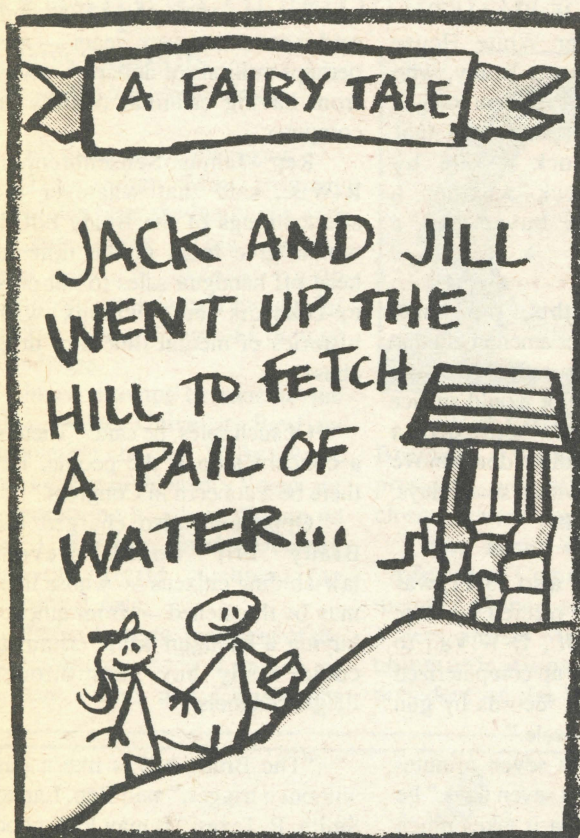 A FAIRY TALE
JACK AND JILL
WENT UP THE
HILL TO FETCH
A PAIL OF
WATER...